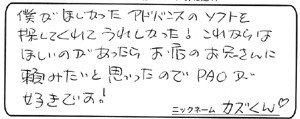 僕がほしかったアドバンスのソフトを
探してくれてうれしかった！これからは
ほしいのがあったらお店のお兄さんに
頼みたいと思ったのでPAOが
好きです！
ニックネーム カズくん♡